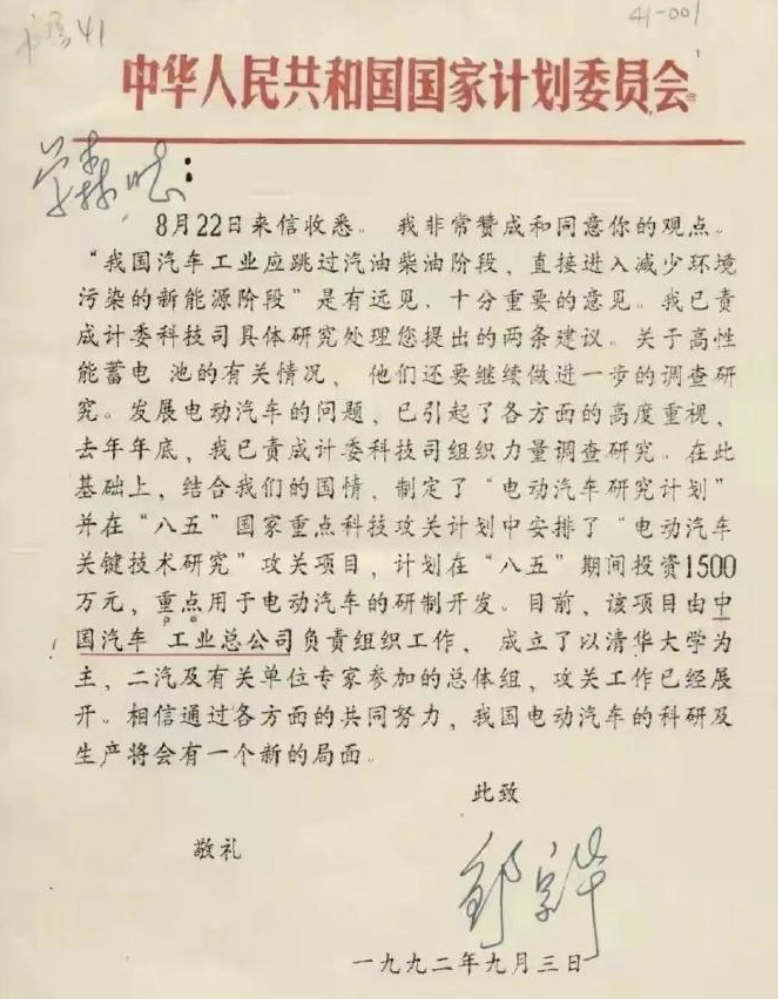 41
41-001
中华人民共和国国家计划委员会
学森同志：
8月22日来信收悉。我非常赞成和同意你的观点。
“我国汽车工业应跳过汽油柴油阶段，直接进入减少环境
污染的新能源阶段”是有远见，十分重要的意见。我已责
成计委科技司具体研究处理您提出的两条建议。关于高性
能蓄电 池的有关情况，他们还要继续做进一步的调查研
究。发展电动汽车的问题，已引起了各方面的高度重视，
去年年底，我已责成计委科技司组织力量调查研究。在此
基础上，结合我们的国情，制定了“电动汽车研究计划”
并在“八五”国家重点科技攻关计划中安排了“电动汽车
关键技术研究”攻关项目，计划在“八五”期间投资1500
万元，重点用于电动汽车的研制开发。目前，该项目由中
国汽车 工业总公司负责组织工作，成立了以清华大学为
主，二汽及有关单位专家参加的总体组，攻关工作已经展
开。相信通过各方面的共同努力，我国电动汽车的科研及
生产将会有一个新的局面。
此致
敬礼
邹家华
一九九二年九月三日